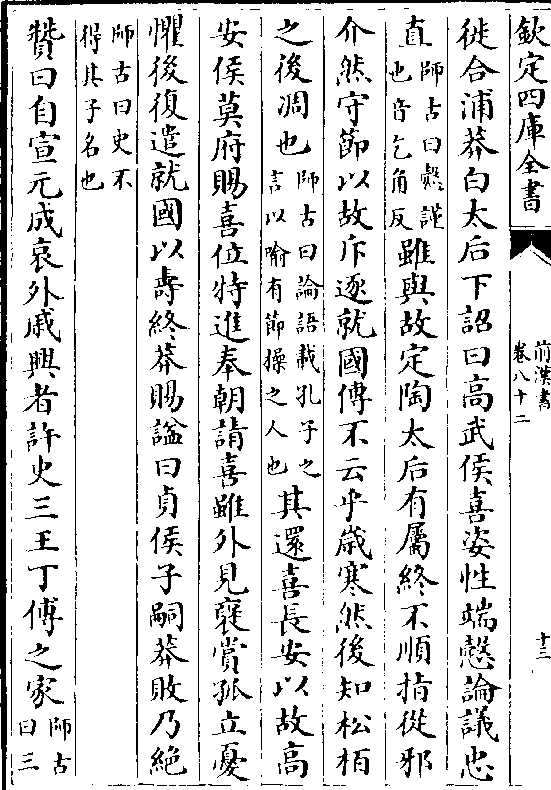 欽定四庫全書
前漢書
卷八十二
十三
徙合浦莽白太后下詔曰高武侯喜姿性端慤論議忠
直師古曰慤謹也音乞角反雖與故定陶太后有屬終不順指從邪
介然守節以故斥逐就國傳不云乎歳寒然後知松栢
之後凋也師古曰論語載孔子之言以喻有節操之人也其還喜長安以故高
安侯莫府賜喜位特進奉朝請喜雖外見襃賞孤立憂
懼後復遣就國以壽終莽賜謚曰貞侯子嗣莽敗乃絶
師古曰史不得其子名也
贊曰自宣元成哀外戚興者許史三王丁傅之家師古曰三